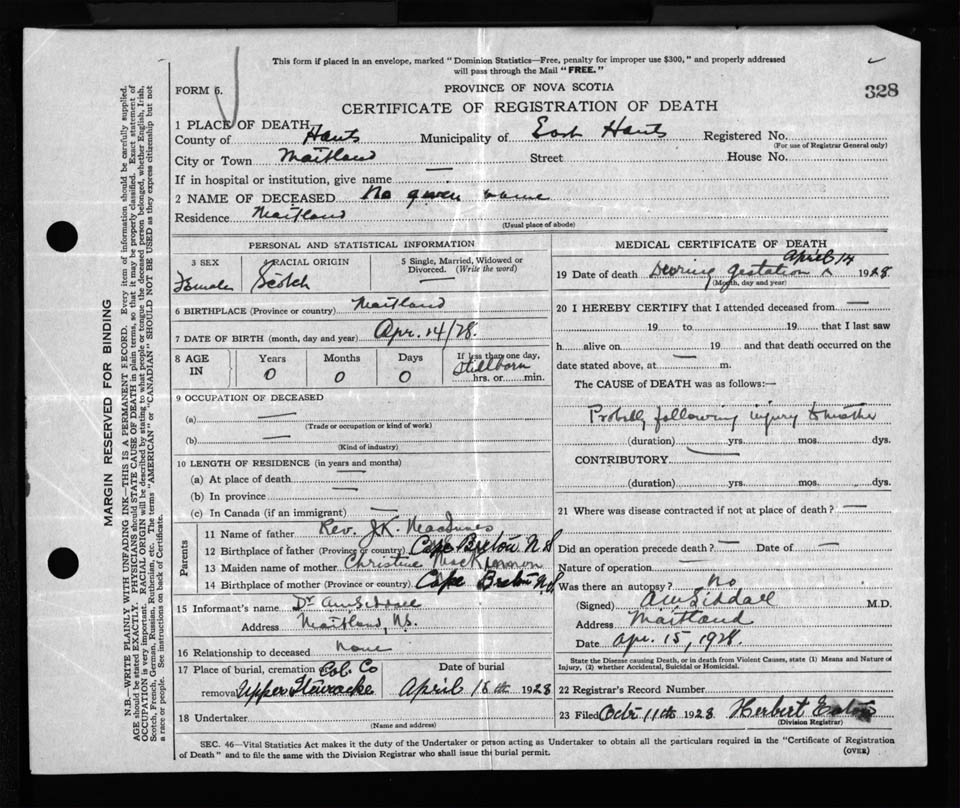 This form if placed in an envelope, marked "Dominion Statistics—Free, penalty for improper use $300," and properly addressed
will pass through the Mail "FREE."
FORM 6.
PROVINCE OF NOVA SCOTIA
328
CERTIFICATE OF REGISTRATION OF DEATH
1 PLACE OF DEATH
County of Hants Municipality of East Hants Registered No.
(For use of Registrar General only)
City or Town Maitland Street House No.
If in hospital or institution, give name —
2 NAME OF DECEASED No given name
Residence Maitland
(Usual place of abode)
PERSONAL AND STATISTICAL INFORMATION
3 SEX 4 RACIAL ORIGIN 5 Single, Married, Widowed or
Divorced. (Write the word)
Female Scotch
6 BIRTHPLACE (Province or country) Maitland
7 DATE OF BIRTH (month, day and year) Apr. 14/28.
8 AGE IN Years Months Days If less than one day,
0 0 0 Stillborn
hrs. or min.
9 OCCUPATION OF DECEASED
(a) —
(Trade or occupation or kind of work)
(b) —
(Kind of industry)
10 LENGTH OF RESIDENCE (in years and months)
(a) At place of death —
(b) In province —
(c) In Canada (if an immigrant) —
Parents
11 Name of father Rev. J.K. MacInnes
12 Birthplace of father (Province or country) Cape Breton N.S
13 Maiden name of mother Christine MacKinnon
14 Birthplace of mother (Province or country) Cape Breton N.S.
15 Informant's name Dr
Address Maitland, N.S.
16 Relationship to deceased None
17 Place of burial, cremation Col. Co Date of burial
removal Upper Stewiacke April 18th 1928
18 Undertaker
(Name and address)
MEDICAL CERTIFICATE OF DEATH
April 14
19 Date of death During gestation ^ 1928
(Month, day and year)
20 I HEREBY CERTIFY that I attended deceased from —
19 to 19 that I last saw
h alive on 19 and that death occurred on the
date stated above, at — m.
The CAUSE of DEATH was as follows:—
Probably following injury to mother
(duration) yrs. mos. dys.
CONTRIBUTORY —
(duration) yrs. mos. dys.
21 Where was disease contracted if not at place of death? —
Did an operation precede death? — Date of —
Nature of operation —
Was there an autopsy? no
(Signed) M.D.
Address Maitland
Date Apr. 15, 1928.
State the Disease causing Death, or in death from Violent Causes, state (1) Means and Nature of
Injury, (2) whether Accidental, Suicidal or Homicidal.
22 Registrar's Record Number
23 Filed Octr 11th 1928 Herbert
(Division Registrar)
SEC. 46—Vital Statistics Act makes it the duty of the Undertaker or person acting as Undertaker to obtain all the particulars required in the "Certificate of Registration
of Death" and to file the same with the Division Registrar who shall issue the burial permit.
(OVER)
MARGIN RESERVED FOR BINDING
N.B.—WRITE PLAINLY WITH UNFADING INK—THIS IS A PERMANENT RECORD. Every item of information should be carefully supplied.
AGE should be stated EXACTLY. PHYSICIANS should STATE CAUSE OF DEATH in plain terms, so that it may be properly classified. Exact statement of
OCCUPATION is very important. RACIAL ORIGIN will be described by stating to what people or tongue the deceased person belonged, whether English, Irish,
Scotch, French, German, Russian, Ruthenian, etc. The terms "AMERICAN" or "CANADIAN" SHOULD NOT BE USED as they express citizenship but not
a race or people. See instructions on back of Certificate.